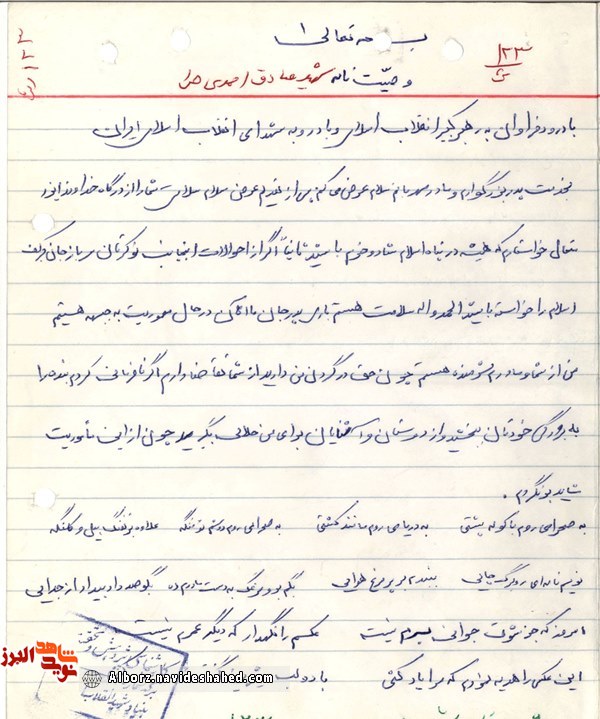 بسمه تعالی
۱۲۳
وصیّت نامه شهید صادق احمدی
با درود فراوان به رهبر کبیر انقلاب اسلامی و با درود به شهدای انقلاب اسلامی ایران
بخدمت پدر بزرگوارم و مادر مهربانم سلام عرض می کنم پس از تقدیم عرض سلام سلامتی شما را از درگاه خداوند
متعال خواستارم که همیشه در پناه اسلام شاد و خرم باشید ثانیاً اگر از احوالات اینجانب نوکرتان سرباز جان برکف
اسلام را خواسته باشید الحمد واله سلامت هستم باری پدر جان ما الان در حال ماموریت به جبهه هستیم
من از شما و مادرم شرمنده هستم چون حق در گردن من دارید از شما تقاضا دارم اگر نافرمانی کردم بنده را
به بزرگی خودتان ببخشید و از دوستان و آشنایان برای من حلالی بگیرید چون از این مأموریت
شاید برنگردم .
به صحرا می روم با کوله پشتی به دریا می روم مانند کشتی به صحرا می روم دوشم تفنگه علاوه بر تفنگ بیل و کلنگه
نویسم نامه ای روی برگ چایی ببندم بر پر مرغ هوایی بگو صد داد بیداد از جدایی
امروز که جز شربت جوانی عکسم را نگهدار که دیگر عمرم نیست
این عکس را هدیه نمودم که مرا یاد کنی
نوید شاهد البرز
Alborz.navideshahed.com